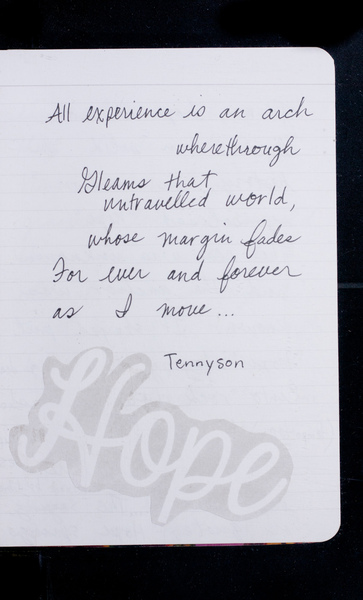 All experience is an arch
wherethrough
Gleams that
untravelled world,
whose margin fades
For ever and forever
as I move...
Tennyson
Hope